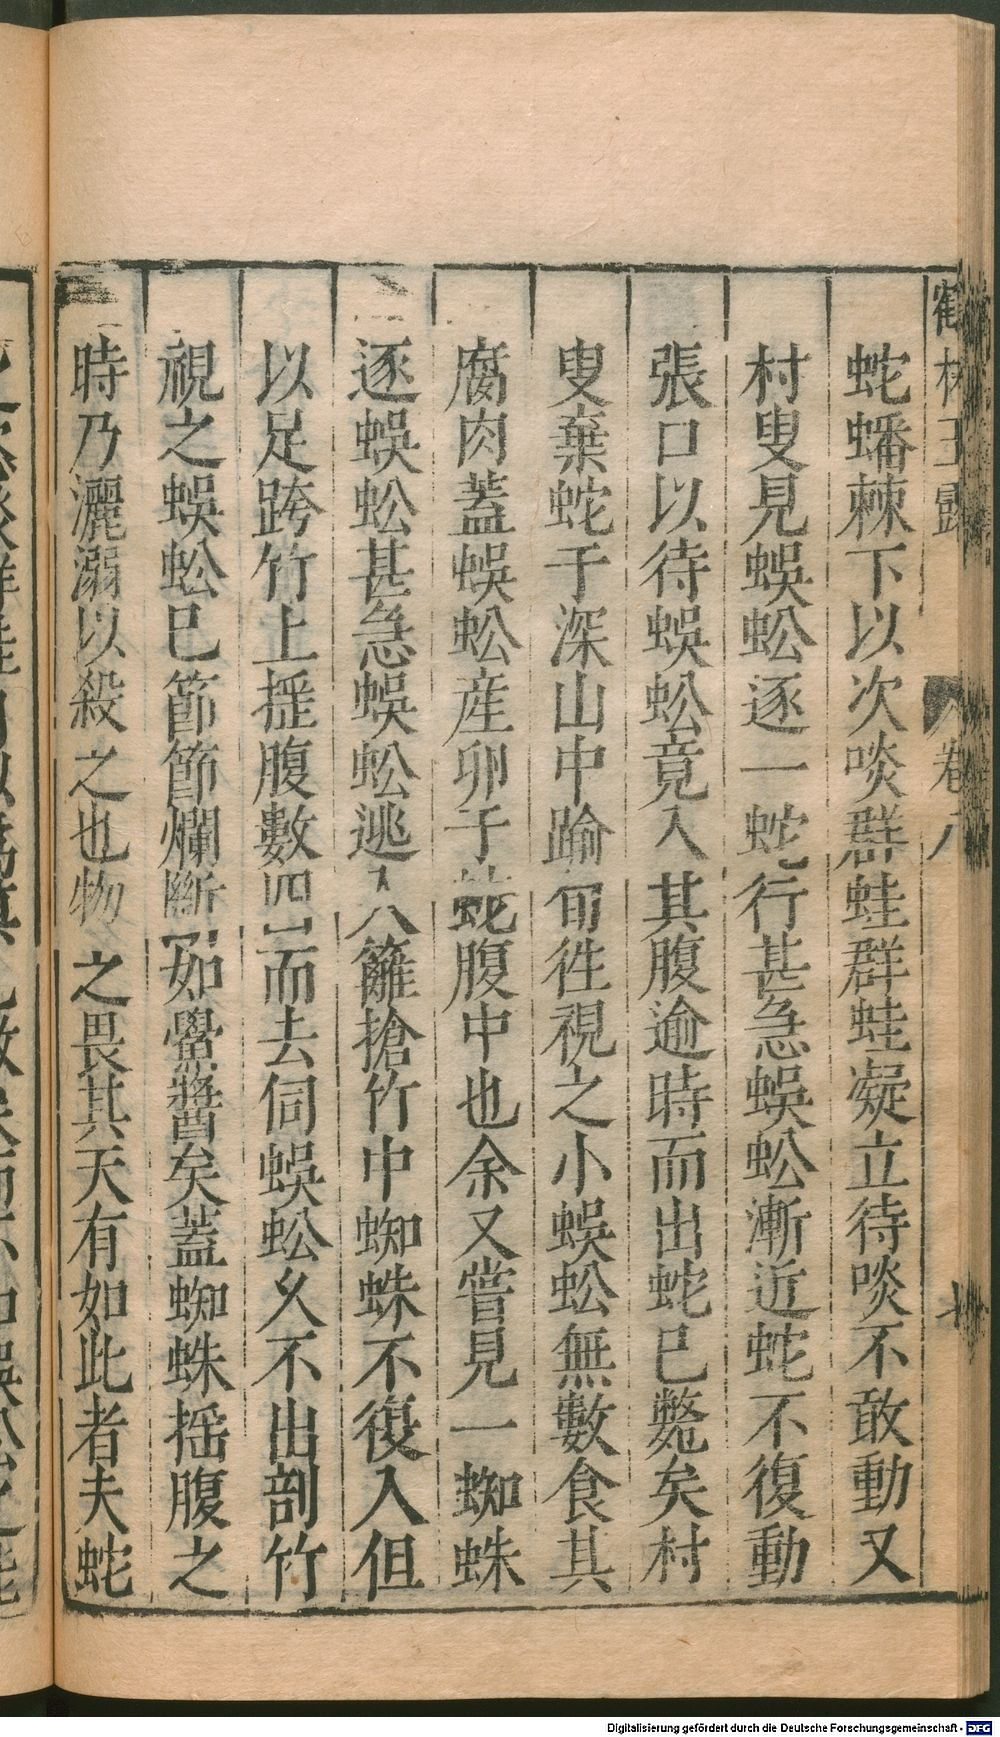 鶴林玉露 卷八
蛇蟠棘下以次啖群蛙群蛙凝立待啖不敢動又
村叟見蜈蚣逐一蛇行甚急蜈蚣漸近蛇不復動
張口以待蜈蚣竟入其腹逾時而出蛇已斃矣村
叟棄蛇于深山中踰旬徃視之小蜈蚣無數食其
腐肉蓋蜈蚣産卵于蛇腹中也余又嘗見一蜘蛛
逐蜈蚣甚急蜈蚣逃入籬搶竹中蜘蛛不復入但
以足跨竹上摇腹數四而去伺蜈蚣久不出剖竹
視之蜈蚣已節節爛斷如鱟醬矣蓋蜘蛛摇腹之
時乃灑溺以殺之也物之畏其天有如此者夫蛇
Digitalisierung gefördert durch die Deutsche Forschungsgemeinschaft - DFG